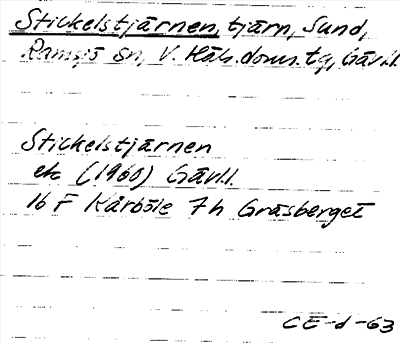 Stickelstjärnen, tjärn, Sund,
Ramsjö sn, V. Häls. doms. tg, Gävl.l.
Stickelstjärnen
ek (1960) Gävl.l.
16 F Kårböle 7h Gråsberget
CE-d-63